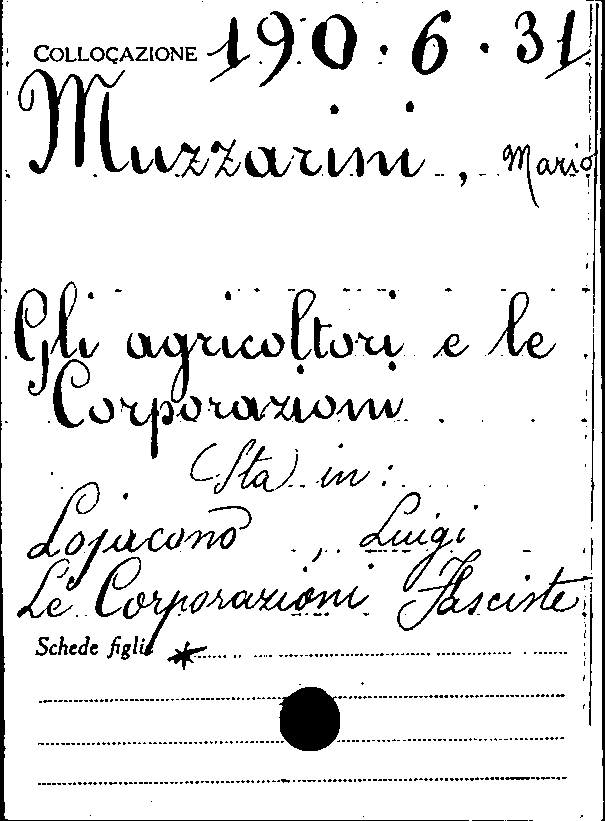 COLLOCAZIONE 190.6.31
Muzzarini, Mario
Gli agricoltori e le
Corporazioni
(Sta) in:
Lojacono, Luigi
Le Corporazioni Fasciste
Schede figlie *